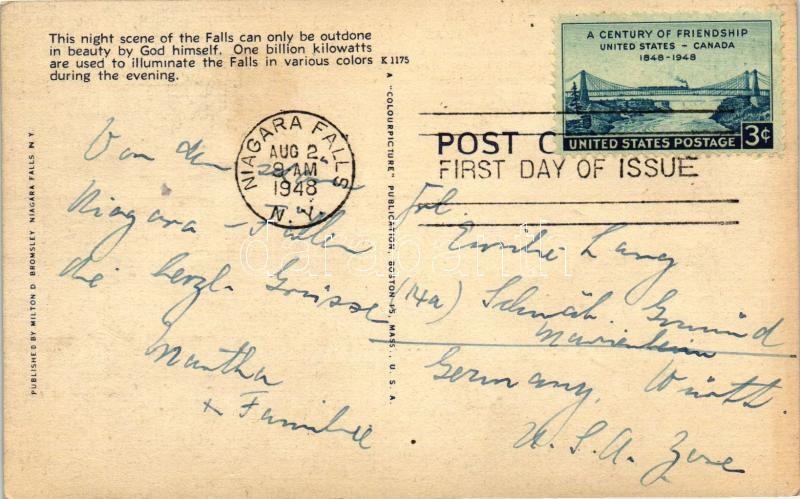 This night scene of the Falls can only be outdone
in beauty by God himself. One billion kilowatts
are used to illuminate the Falls in various colors
during the evening.
K 1175
A CENTURY OF FRIENDSHIP
UNITED STATES - CANADA
1848-1948
UNITED STATES POSTAGE 3¢
NIAGARA FALLS
AUG 2
9 AM
1948
N. Y.
POST C
FIRST DAY OF ISSUE
Von den
Niagara-Fällen
die herzl. Grüsse
Martha
+ Familie
Frl.
Emilie Lang
(14a) Schwäb. Gmünd
Marienheim
Germany, Württ.
U.S.A. Zone
A "COLOURPICTURE" PUBLICATION, BOSTON 15, MASS., U. S. A.
PUBLISHED BY MILTON D. BROMSLEY, NIAGARA FALLS, N. Y.
darabanth